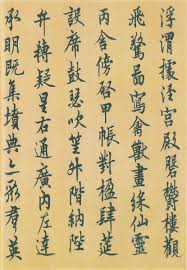 浮渭據涇宮殿磐鬱樓觀
飛驚啚寫禽獸畫綵仙靈
丙舍傍啓甲帳對楹肆筵
設席鼓瑟吹笙升階納陛
弁轉疑星右通廣內左達
承明既集墳典亦聚群英